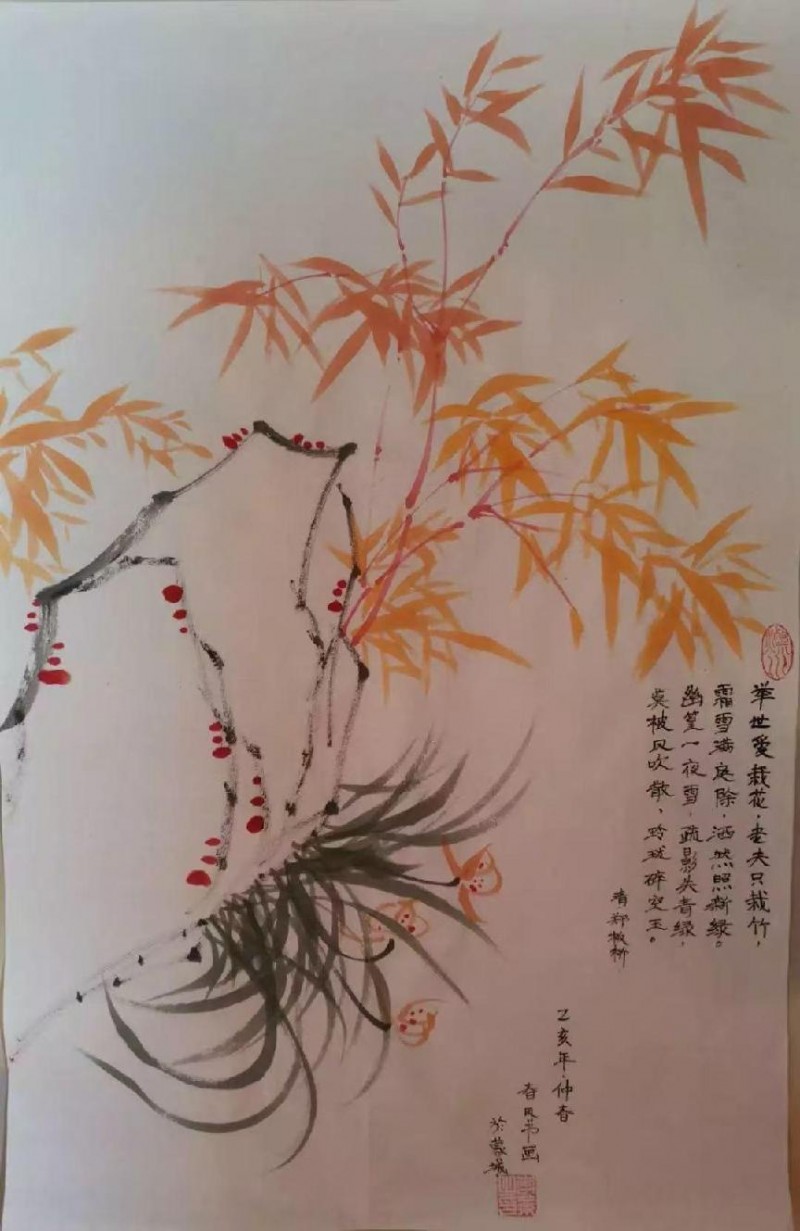 举世爱栽花，老夫只栽竹，
霜雪满庭除，洒然照新绿。
幽篁一夜雪，疏影失青绿，
莫被风吹散，玲珑碎空玉。
清郑板桥
乙亥年·仲春
春风书画
於蒙城